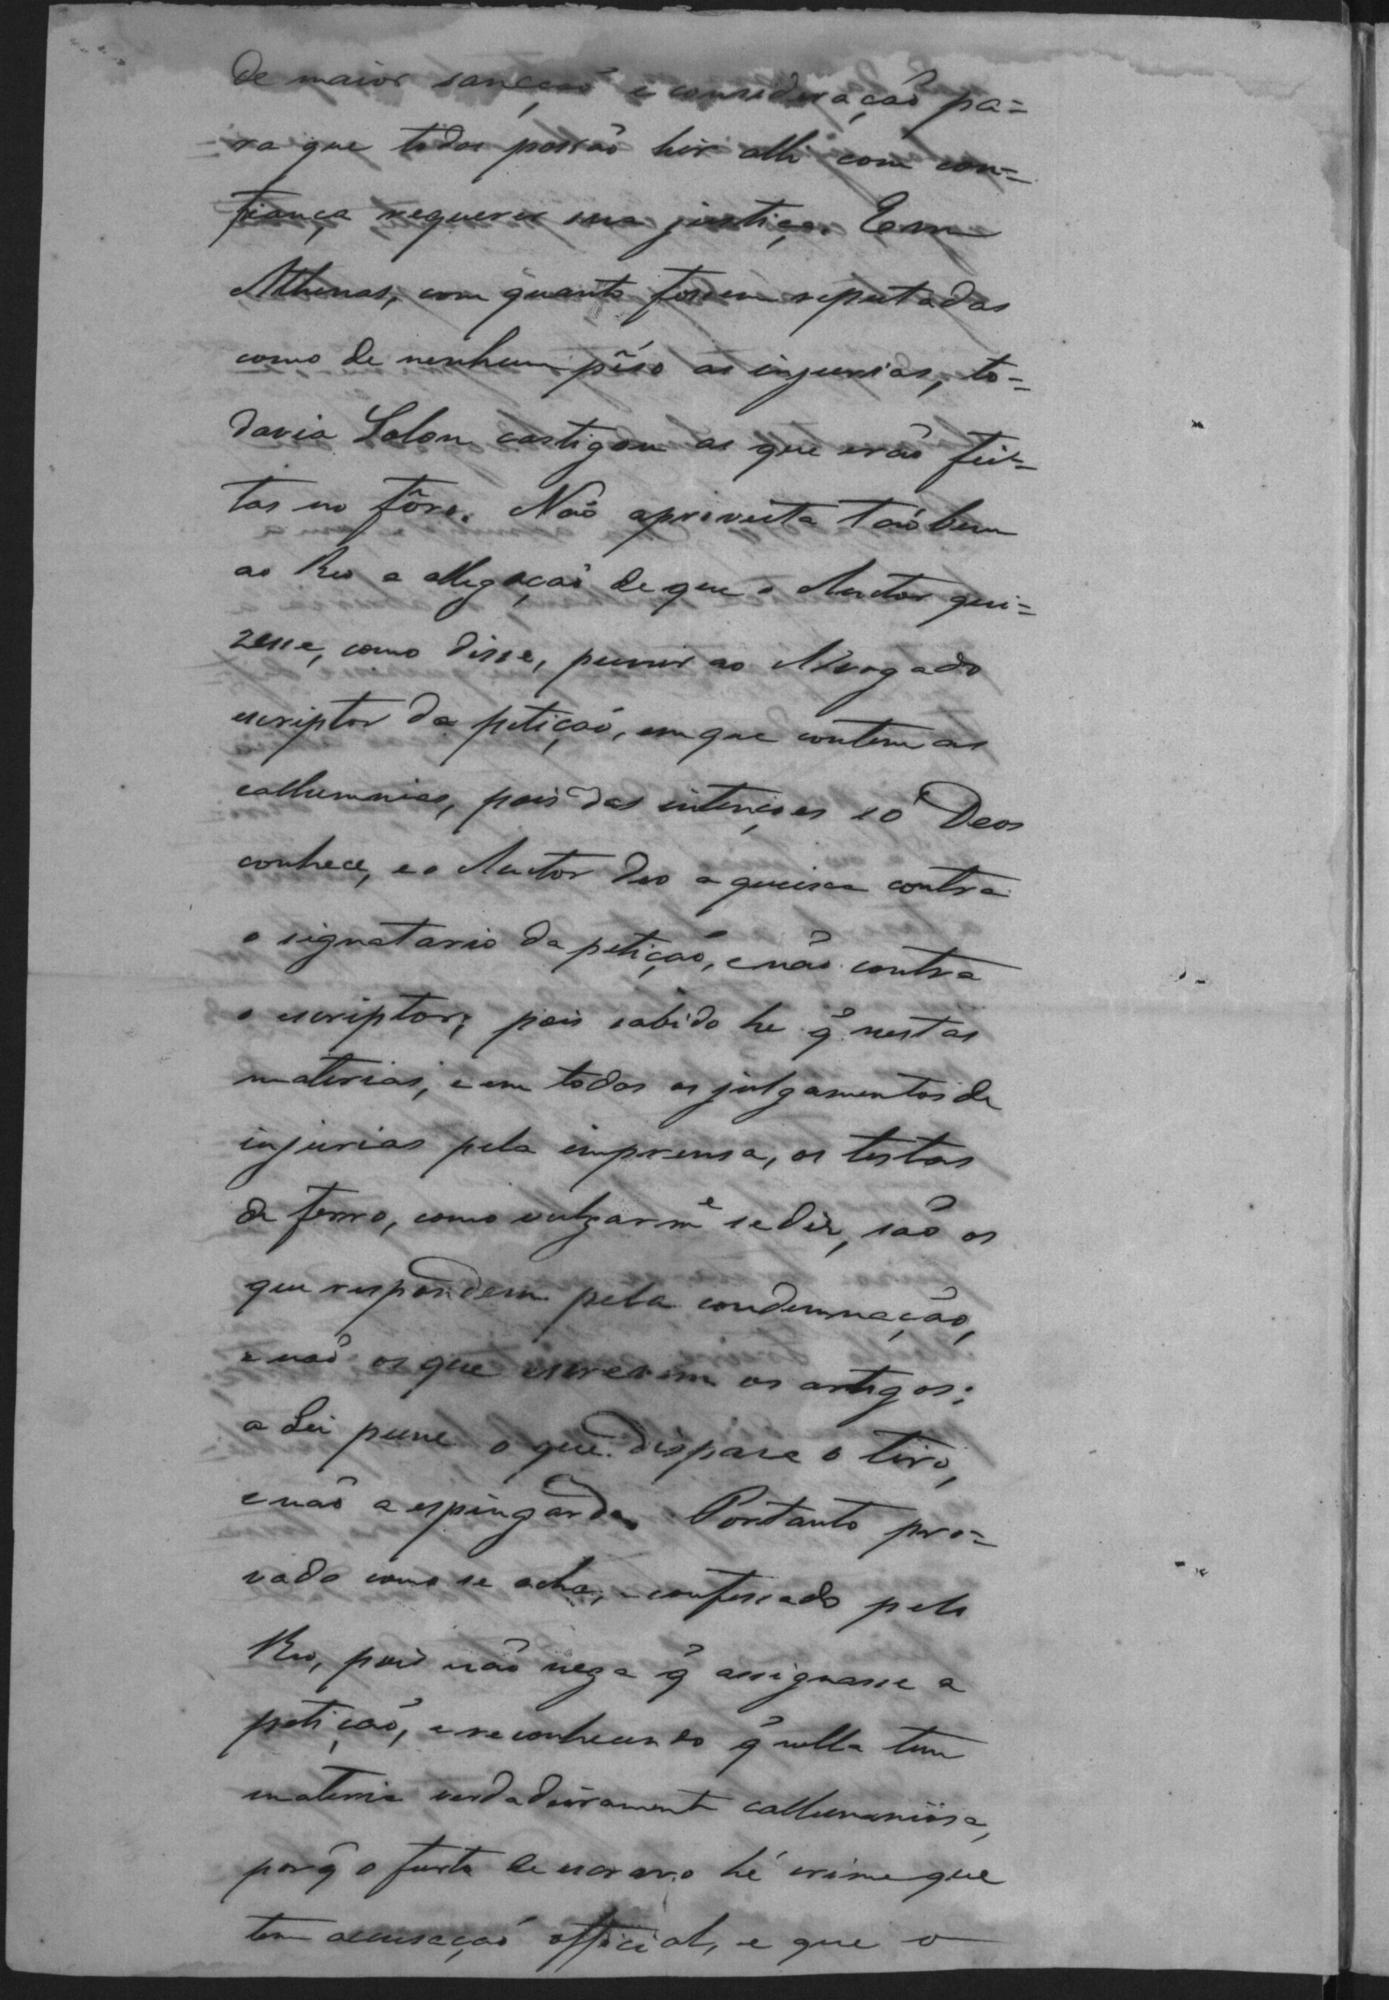 de maior sancçaõ e consideraçaõ pa=
ra que todos possaõ hir alli com con=
fiança requerer sua justiça. Em
Athenas, com quanto fossem reputadas
como de nenhum pêso as injurias, to=
davia Solon castigou as que eraõ fei=
tas no fôro. Naõ aproveita taõ bem
ao Reo a allegaçaõ de que o Auctor qui=
zesse, como disse, punir ao Advogado
escriptor da petiçaõ, em que contem as
callumnias, pois das intençoes só Deos
conhece, e o Auctor deo a queixa contra
o signatario da petiçaõ, e naõ contra
o escriptor; pois sabido he q̃ nestas
materias, e em todos os julgamentos de
injurias pela imprensa, os testas
de ferro, como vulgarmᵉ se diz, saõ os
que respondem pela condemnaçaõ,
e naõ os que escrevem os artigos:
a Lei pune o que dispara o tiro,
e naõ a espingarda. Portanto pro=
vado como se acha, e confessado pelo
Reo, pois naõ nega q̃ assignasse a
petiçaõ, e reconhecendo q̃ nella tem
materia verdadeiramente callumniosa,
porq̃ o furto de escravo hé crime que
tem accusaçaõ official, e que o